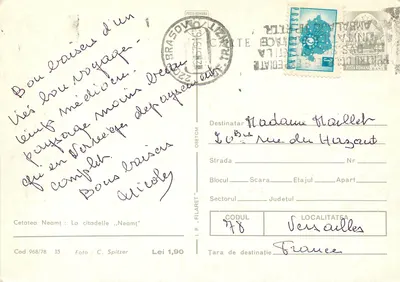 2200 BRASOV
Bon baisers d'un
très bon voyage -
temps médiocre.
paysage moins beau
qu'en Norvège dépaysement
complet.
Bons baisers
Nicole
Cetatea Neamț : La citadelle „Neamț"
Cod 968/76 25 Foto : C. Spitzer Lei 1,90
I. P. „FILARET"
Destinatar Madame Maillet
20 Bis rue du Hazard
Strada Nr.
Blocul Scara Etajul Apart.
Sectorul Judetul
CODUL LOCALITATEA
78 Versailles
Țara de destinație: France